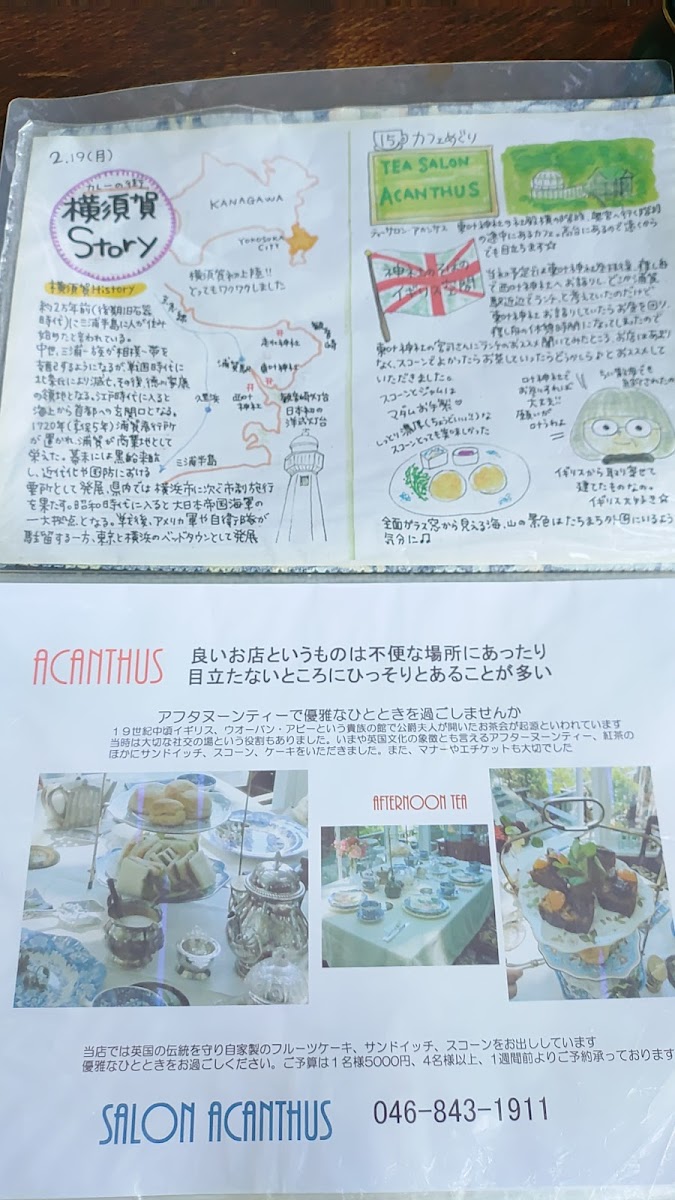 2.19(月)
カレーの街
横須賀
Story
KANAGAWA
YOKOSUKA
CITY
横須賀初上陸!!
とってもワクワクしました
横須賀History
約2万年前(後期旧石器
時代)に三浦半島に人が住み
始めたと言われている。
中世、三浦一族が相模一帯を
支配するようになるが、戦国時代に
北条氏により滅亡、その後、徳川家康
の領地となる。江戸時代に入ると
海上から首都への玄関口となる。
1720年(享保5年)浦賀奉行所
が置かれ、浦賀が商業地として
栄えた。幕末には黒船来航
し、近代化や国防における
要所として発展、県内では横浜市に次ぐ市制施行
を果たす。昭和の時代に入ると大日本帝国海軍の
一大拠点となる。戦後、アメリカ軍や自衛隊が
駐留する一方、東京と横浜のベッドタウンとして発展
浦賀駅
東叶神社
西叶神社
観音崎
久里浜
三浦半島
観音崎灯台
日本初の
洋式灯台
15 カフェめぐり
TEA SALON
ACANTHUS
ティーサロン・アカンサス
東叶神社の社務所横の階段、奥宮へ行く階段
の途中にあるカフェ。高台にあるので遠くから
でも目立ちます☆
神社のそばの
イギリス空間
当初予定では東叶神社参拝後、渡し船
で西叶神社へお詣りし、どこか浦賀
駅近辺でランチ、と考えていたのだけど
東叶神社お詣りしていたらお昼を回り、
渡し船の休憩時間になってしまったので
東叶神社の宮司さんにランチのおススメ聞いてみたところ、お店はあまり
なく、スコーンでよかったらお茶していったらどうでしょう♪とおススメして
いただきました。
スコーンとジャムは
マダムお手製♡
しっとり濃厚(ちょうどいい!!)な
スコーンとっても美味しかった
イギリスから取り寄せて
建てたものなの。
イギリス大好き☆
全面ガラス窓から見える海、山の景色はたちまち外国にいるよう
気分に♫
ACANTHUS
良いお店というものは不便な場所にあったり
目立たないところにひっそりとあることが多い
アフタヌーンティーで優雅なひとときを過ごしませんか
19世紀中頃イギリス、ウオーバン・アビーという貴族の館で公爵夫人が開いたお茶会が起源といわれています
当時は大切な社交の場という役割もありました。いまや英国文化の象徴とも言えるアフターヌーンティー、紅茶の
ほかにサンドイッチ、スコーン、ケーキをいただきました。また、マナーやエチケットも大切でした
AFTERNOON TEA
当店では英国の伝統を守り自家製のフルーツケーキ、サンドイッチ、スコーンをお出ししています
優雅なひとときをお過ごしください。ご予算は1名様5000円、4名様以上、1週間前よりご予約承っております
SALON ACANTHUS
046-843-1911